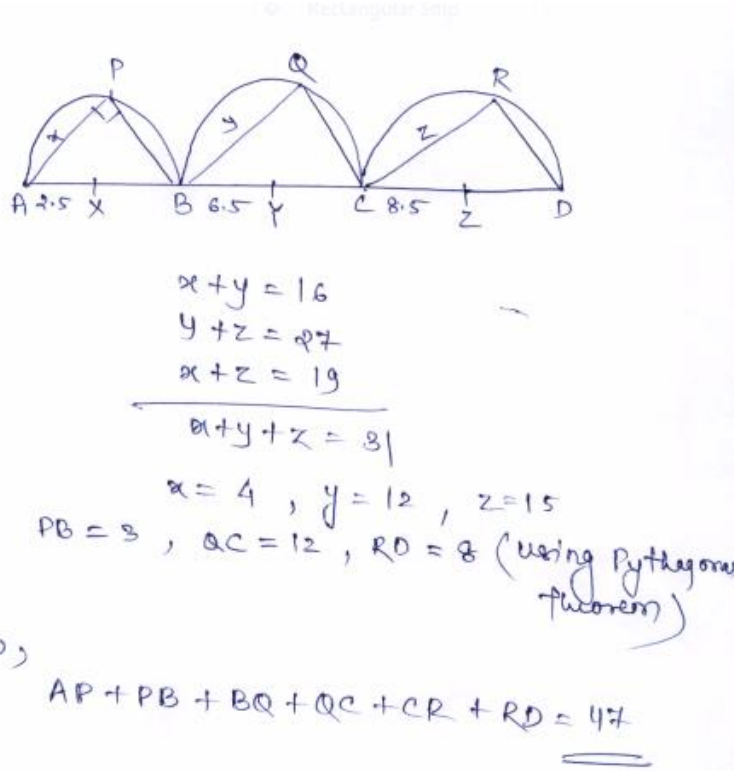 Rectangular Snip
P Q R
x y z
A 2.5 X B 6.5 Y C 8.5 Z D
x + y = 16
y + z = 27
x + z = 19
x + y + z = 31
x = 4 , y = 12 , z = 15
PB = 3 , QC = 12 , RD = 8 (using Pythagoras
theorem)
AP + PB + BQ + QC + CR + RD = 47